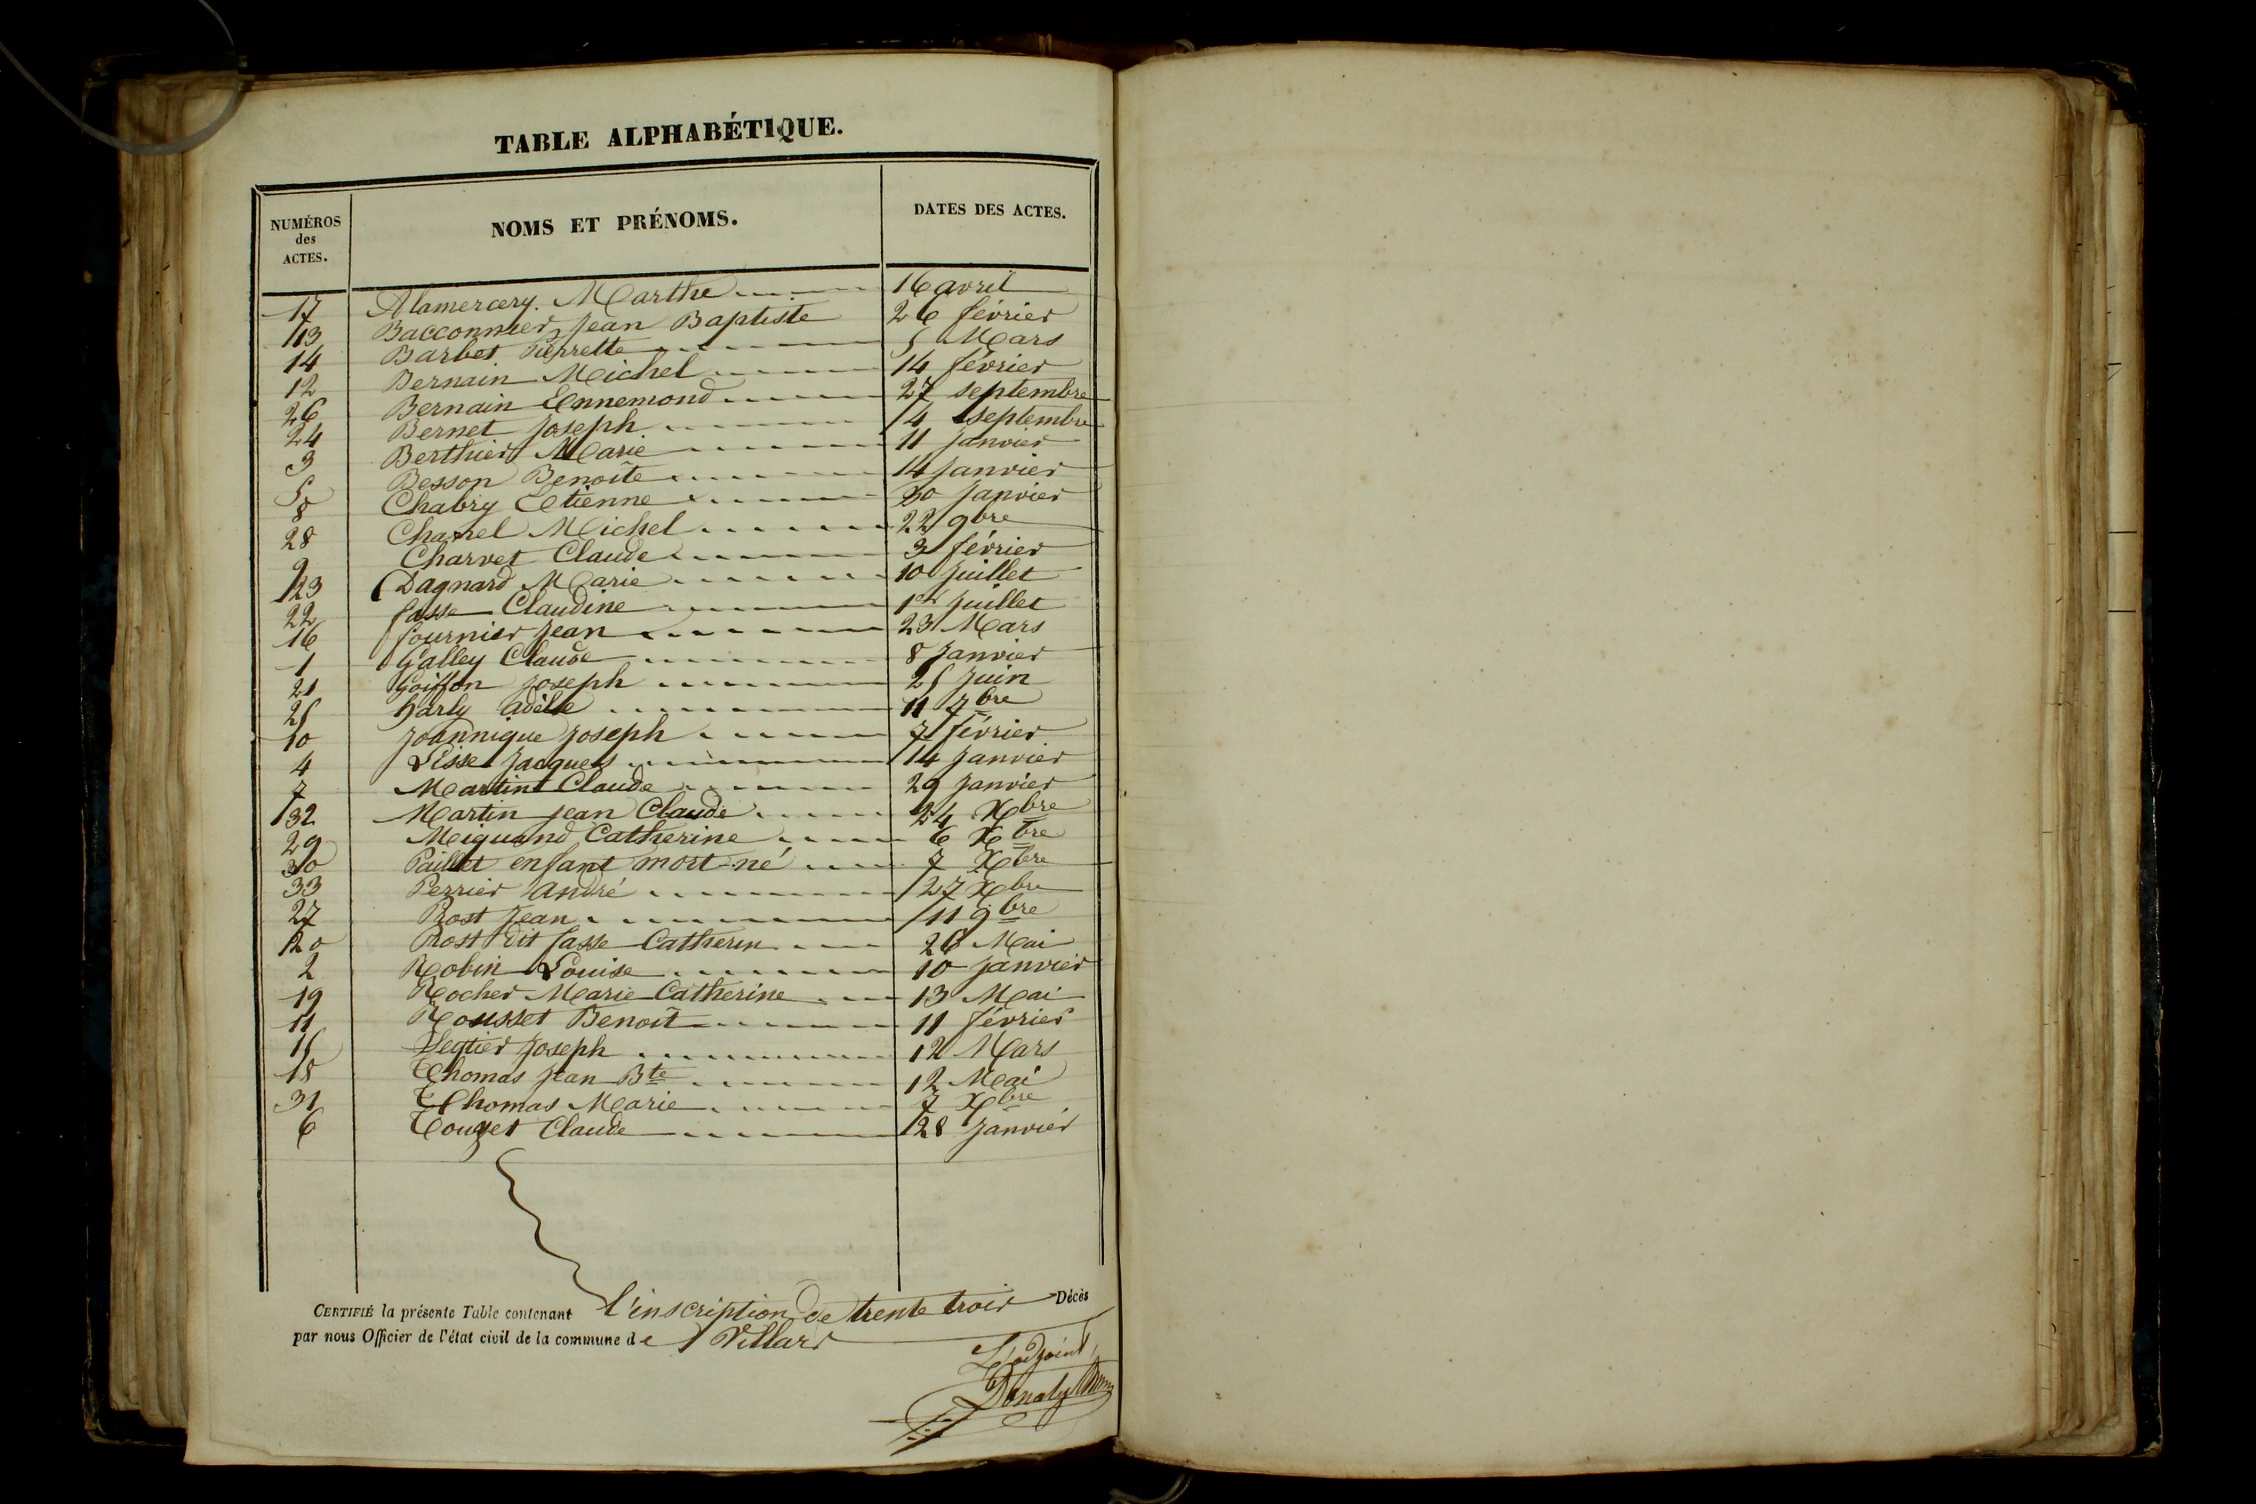 TABLE ALPHABÉTIQUE.
NUMÉROS des ACTES. NOMS ET PRÉNOMS. DATES DES ACTES.
17 Alamercery Marthe 16 avril
13 Bacconnier Jean Baptiste 26 février
14 Barbet Pierrette 5 Mars
12 Bernain Michel 14 février
26 Bernain Ennemond 27 septembre
24 Bernet Joseph 4 septembre
3 Berthier Marie 11 Janvier
5 Besson Benoîte 14 Janvier
8 Chabry Etienne 30 Janvier
28 Chanel Michel 22 9bre
9 Charvet Claude 3 février
23 Dagnard Marie 10 Juillet
22 fasse Claudine 1er Juillet
16 fournier Jean 23 Mars
1 Galley Claude 8 Janvier
21 Goiffon Joseph 25 Juin
25 Harly Adèle 11 7bre
10 Joannique Joseph 7 février
4 Lisse Jacques 14 Janvier
7 Martin Claude 29 Janvier
32 Martin Jean Claude 24 Xbre
29 Meigund Catherine 6 Xbre
30 Paillet enfant mort-né 7 Xbre
33 Perrier André 27 Xbre
27 Prost Jean 11 9bre
20 Prost dit fasse Catherin 26 Mai
2 Robin Louise 10 Janvier
19 Rocher Marie Catherine 13 Mai
11 Rousset Benoît 11 février
15 Joseph 12 Mars
18 Thomas Jean Bte 12 Mai
31 Thomas Marie 7 Xbre
6 Touzet Claude 28 Janvier
CERTIFIÉ la présente Table contenant l'inscription de trente trois Décès
par nous Officier de l'état civil de la commune de Villars
L'adjoint,